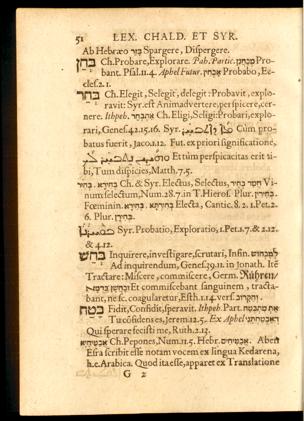 51 LEX. CHALD. ET SYR.
Ab Hebræo בזר Spargere, Dispergere.
בְּחַן Ch. Probare, Explorare. Pah. Partic. Pro-
bant. Psal. 11.4. Aphel Futur. אבחין Probabo, Ec-
cles. 2.1.
בְּחַר Ch. Elegit, Selegit, delegit: Probavit, explo-
ravit: Syr. est Animadvertere, perspicere, cer-
nere. Ithpeh. אתבחר Ch. Eligi, Seligi: Probari, explo-
rari, Genes. 42.15.16. Syr. Cùm pro-
batus fuerit, Jaco. 1.12. Fut. ex priori significatione,
Et tùm perspicacitas erit ti-
bi, Tum dispicies, Matth. 7.5.
בחיר, בחירא Ch. & Syr. Electus, Selectus, חמר בחיר Vi-
num selectum, Num. 28.7. in T. Hieros. Plur. בחירין.
Fœminin. בחירתא, בחירא Electa, Cantic. 8.2. 1. Pet. 2.
6. Plur. בחירן.
Syr. Probatio, Exploratio, 1. Pet. 1.7. & 2.12.
& 4.12.
בְּחַשׁ Inquirere, investigare, scrutari, Infin. למבחוש
Ad inquirendum, Genes. 29.11. in Jonath. Itē
Tractare: Miscere, commiscere, Germ. Rühren/
Et commiscebant sanguinem, tracta-
bant, ne sc. coagularetur, Esth. 1.14. vers.
בְּטַח Fidit, Confidit, speravit. Ithpeh. Part.
Tu cōfidens es, Jerem. 12.5. Ex Aphel
Qui sperare fecisti me, Ruth. 2.13.
Ch. Pepones, Num. 11.5. Hebr. אבטיחים. Aben
Esra scribit esse notam vocem ex lingua Kedarena,
h.e. Arabica. Quod ita esse, apparet ex Translatione
G 2